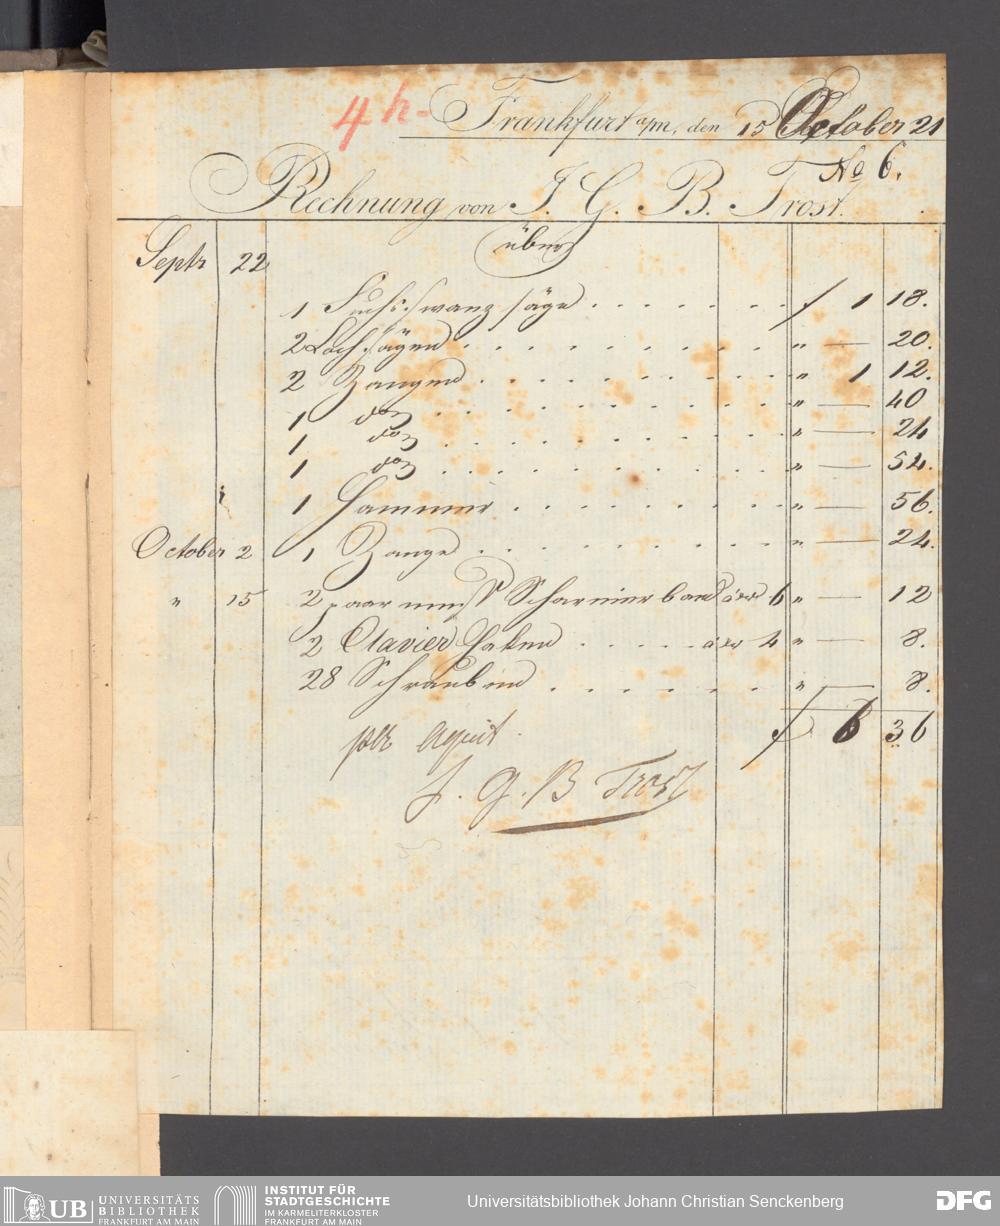 4 h.
Frankfurt a/m, den 15 October 21
No 6.
Rechnung von J. G. B. Trost.
über
Septr 22
1 Fuchsswanz säge . . . . . . . f 1 18.
2 Loch sägen . . . . . . . . . . " — 20.
2 Zangen . . . . . . . . . " 1 12.
1 do . . . . . . . . . . " — 40
1 do . . . . . . . . . " — 24
1 do . . . . . . . . . " — 54.
1 Hammer . . . . . . . . " — 56.
October 2 1 Zange . . . . . . . . " — 24.
" 15 2 paar Scharnier band 6 " — 12
2 Clavier Haken . . . . . 4 " — 8.
28 Schrauben . . . . . . " — 8.
f 6 36
pr Aquit.
J. G. B Trost
UB UNIVERSITÄTS
BIBLIOTHEK
FRANKFURT AM MAIN
INSTITUT FÜR
STADTGESCHICHTE
IM KARMELITERKLOSTER
FRANKFURT AM MAIN
Universitätsbibliothek Johann Christian Senckenberg
DFG